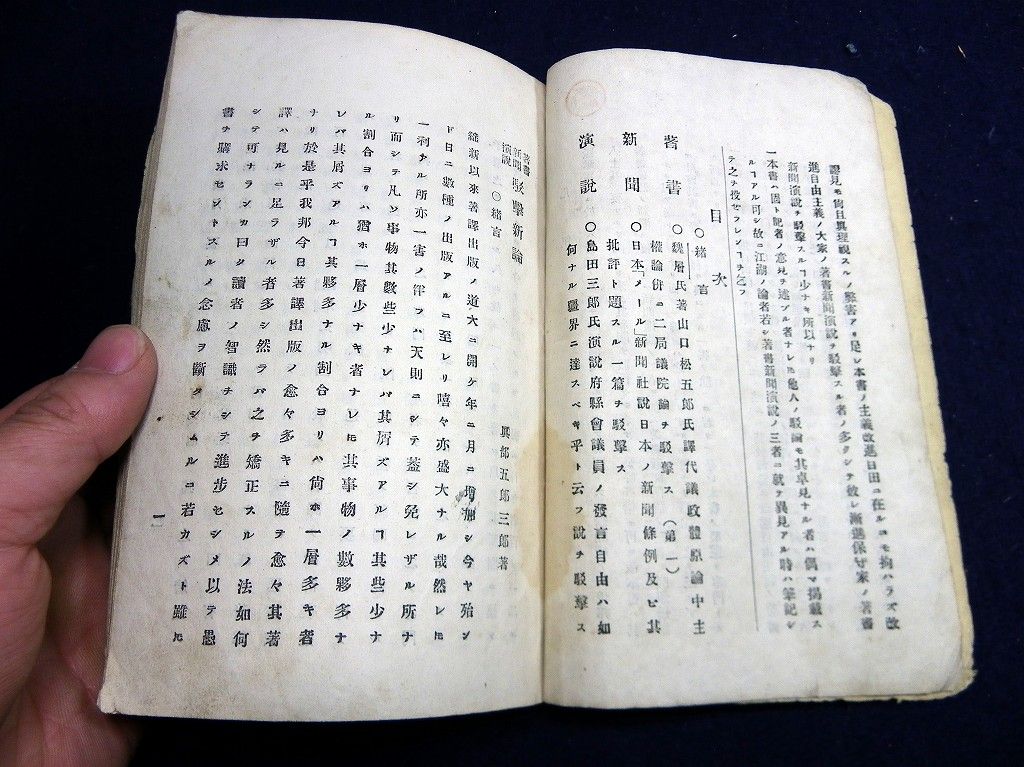 證見モ尙且眞理視スルノ弊害アリ是レ本書ノ主義改進自由ニ在ルニモ拘ハラズ改
進自由主義ノ大家ノ著書新聞演說ヲ駁擊スル者ノ多クシテ敢レ漸進保守家ノ著書
新聞演說ヲ駁擊スルヿ少ナキ所以ナリ
一本書ハ固ト記者ノ意見ヲ述ブル者ナレ𪜈他人ノ駁論モ其卓見ナル者ハ偶マ揭載ス
ルヿアル可シ故ニ江湖ノ論者若シ著書新聞演說ノ三者ニ就テ異見アル時ハ筆記シ
テ之ヲ投セラレンヿヲ乞フ
目次
○緒言
著書 ○魏層氏著山口松五郞氏譯代議政體原論中主
權論倂ニ二局議院論ヲ駁擊ス（第一）
新聞 ○日本「メール」新聞社說日本ノ新聞條例及ビ其
批評ト題スル一篇ヲ駁擊ス
演說 ○島田三郞氏演說府縣會議員ノ發言自由ハ如
何ナル疆界ニ達スベキ乎ト云フ說ヲ駁擊ス
著書
新聞
演說
駁擊新論
興部五郞三郞著
○緒言
維新以來著譯出版ノ道大ニ開ケ年ニ月ニ增加シ今ヤ殆ン
ド日ニ數種ノ出版アルニ至レリ嘻々亦盛大ナル哉然レ𪜈
一利アル所亦一害ノ伴フハ天則ニシテ蓋シ免レザル所ナ
リ而シテ凡ソ事物其數些少ナレバ其屑ズアルヿ其些少ナ
ル割合ヨリハ猶ホ一層少ナキ者ナレ𪜈其事物ノ數夥多ナ
レバ其屑ズアルヿ其夥多ナル割合ヨリハ尙ホ一層多キ者
ナリ於是乎我邦今日著譯出版ノ愈々多キニ隨ヲ愈々其著
譯ハ見ルニ足ラザル者多シ然ラバ之ヲ矯正スルノ法如何
シテ可ナランカ曰ク讀者ノ智識ヲシテ進步セシメ以テ愚
書ヲ購求セントスルノ念慮ヲ斷タシムルニ若カズト雖𪜈
一